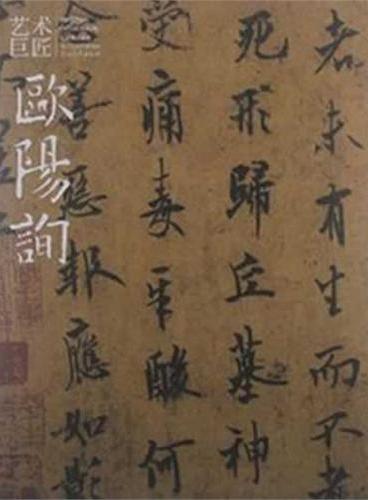 艺术
巨匠
歐陽詢
者未有生而不老
死形歸丘墓神
受痛毒辛酸何
善惡報應如影